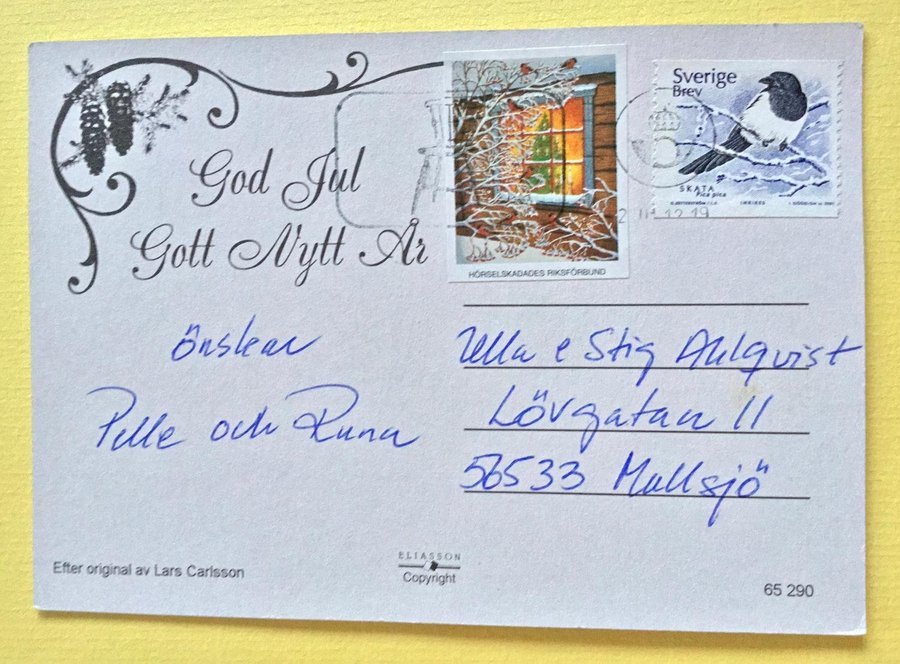 God Jul
Gott Nytt År
önskar
Pelle och Runa
HÖRSELSKADADES RIKSFÖRBUND
Sverige
Brev
SKATA
Pica pica
INRIKES
01.12.19
Ulla e Stig Ahlqvist
Lövgatan 11
56533 Mullsjö
Efter original av Lars Carlsson
ELIASSON
Copyright
65 290